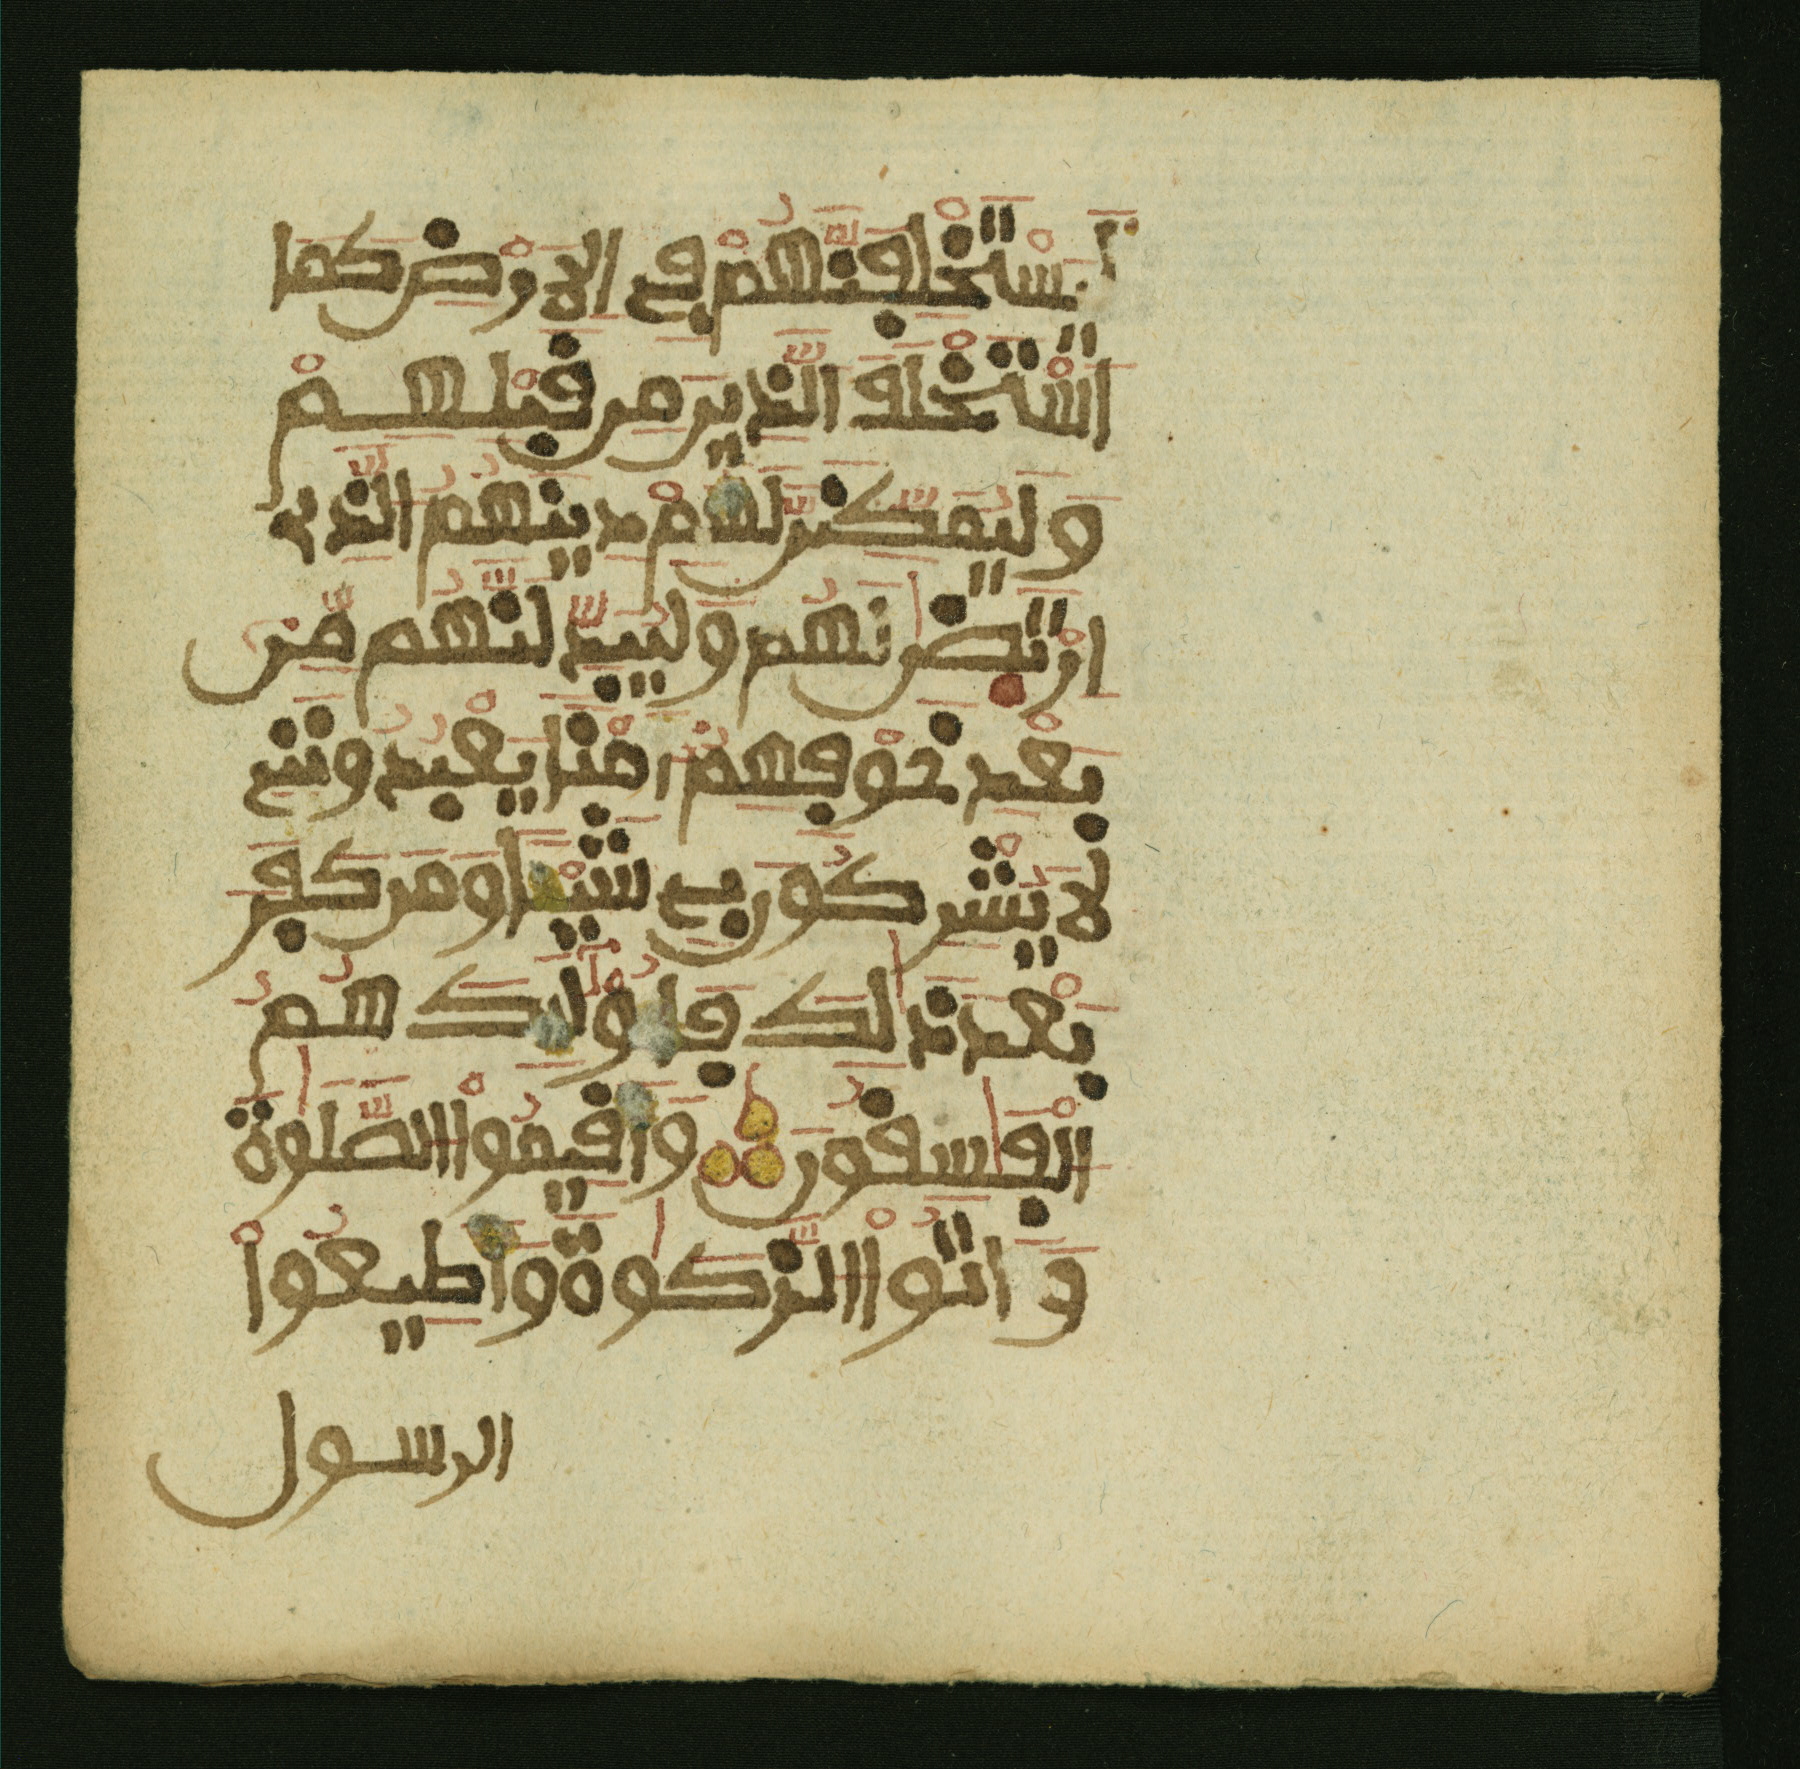 ليَسْتَخْلِفَنَّهُمْ فِي الاَرْضِ كَمَا
اَسْتَخْلَفَ الَّذِينَ مِن قَبْلِهِمْ
وَلَيُمَكِّنَنَّ لَهُمْ دِينَهُمُ الَّذِے
اِرْتَضٰىٰ لَهُمْ وَلَيُبَدِّلَنَّهُم مِّنۢ
بَعْدِ خَوْفِهِمُۥٓ أَمْنا يَعْبُدُونَنِے
لَا يُشْرِكُونَ بِے شَيْـٔاً وَمَن كَفَرَ
بَعْدَ ذَٰلِكَ فَأُوْلَٰٓئِكَ هُمُ
الْفَٰسِقُونَ وَأَقِيمُواْ الصَّلَوٰةَ
وَءَاتُواْ الزَّكَوٰةَ وَأَطِيعُواْ
الرسول